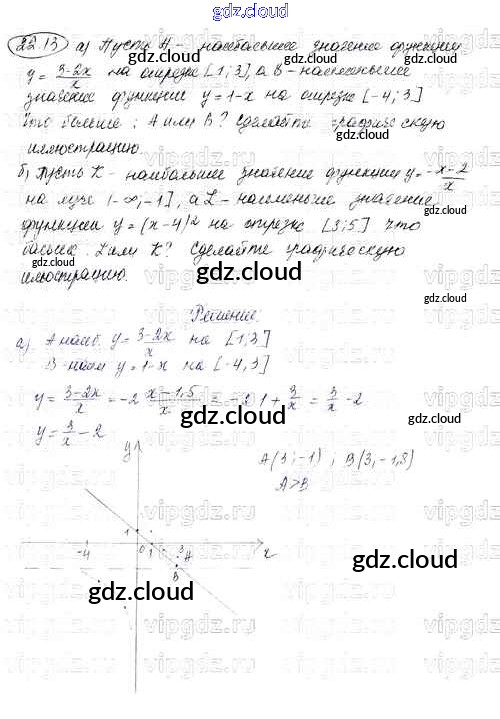 gdz.cloud
22.13 а) Пусть А - наибольшее значение функции
y = 3-2x/x на отрезке [1;3], а В - наименьшее
значение функции y=1-x на отрезке [-4;3]
Что больше: А или В? Сделайте графическую
иллюстрацию.
б) Пусть К - наибольшее значение функции y = -x-2/x
на луче (-∞;-1], а L - наименьшее значение
функции y=(x-4)² на отрезке [3;5] Что
больше: L или К? Сделайте графическую
иллюстрацию.
Решение
а) А наиб. y = 3-2x/x на [1;3]
В наим y=1-x на [-4,3]
y = 3-2x/x = -2 x-1,5/x =
y = 3/x - 2
А(3;-1); В(3,-1,8)
А>В
y
1
-4
0
1
3
А
В
x
gdz.cloud
gdz.cloud
gdz.cloud
gdz.cloud
gdz.cloud
gdz.cloud
gdz.cloud
gdz.cloud
gdz.cloud
gdz.cloud
gdz.cloud
vipgdz.ru